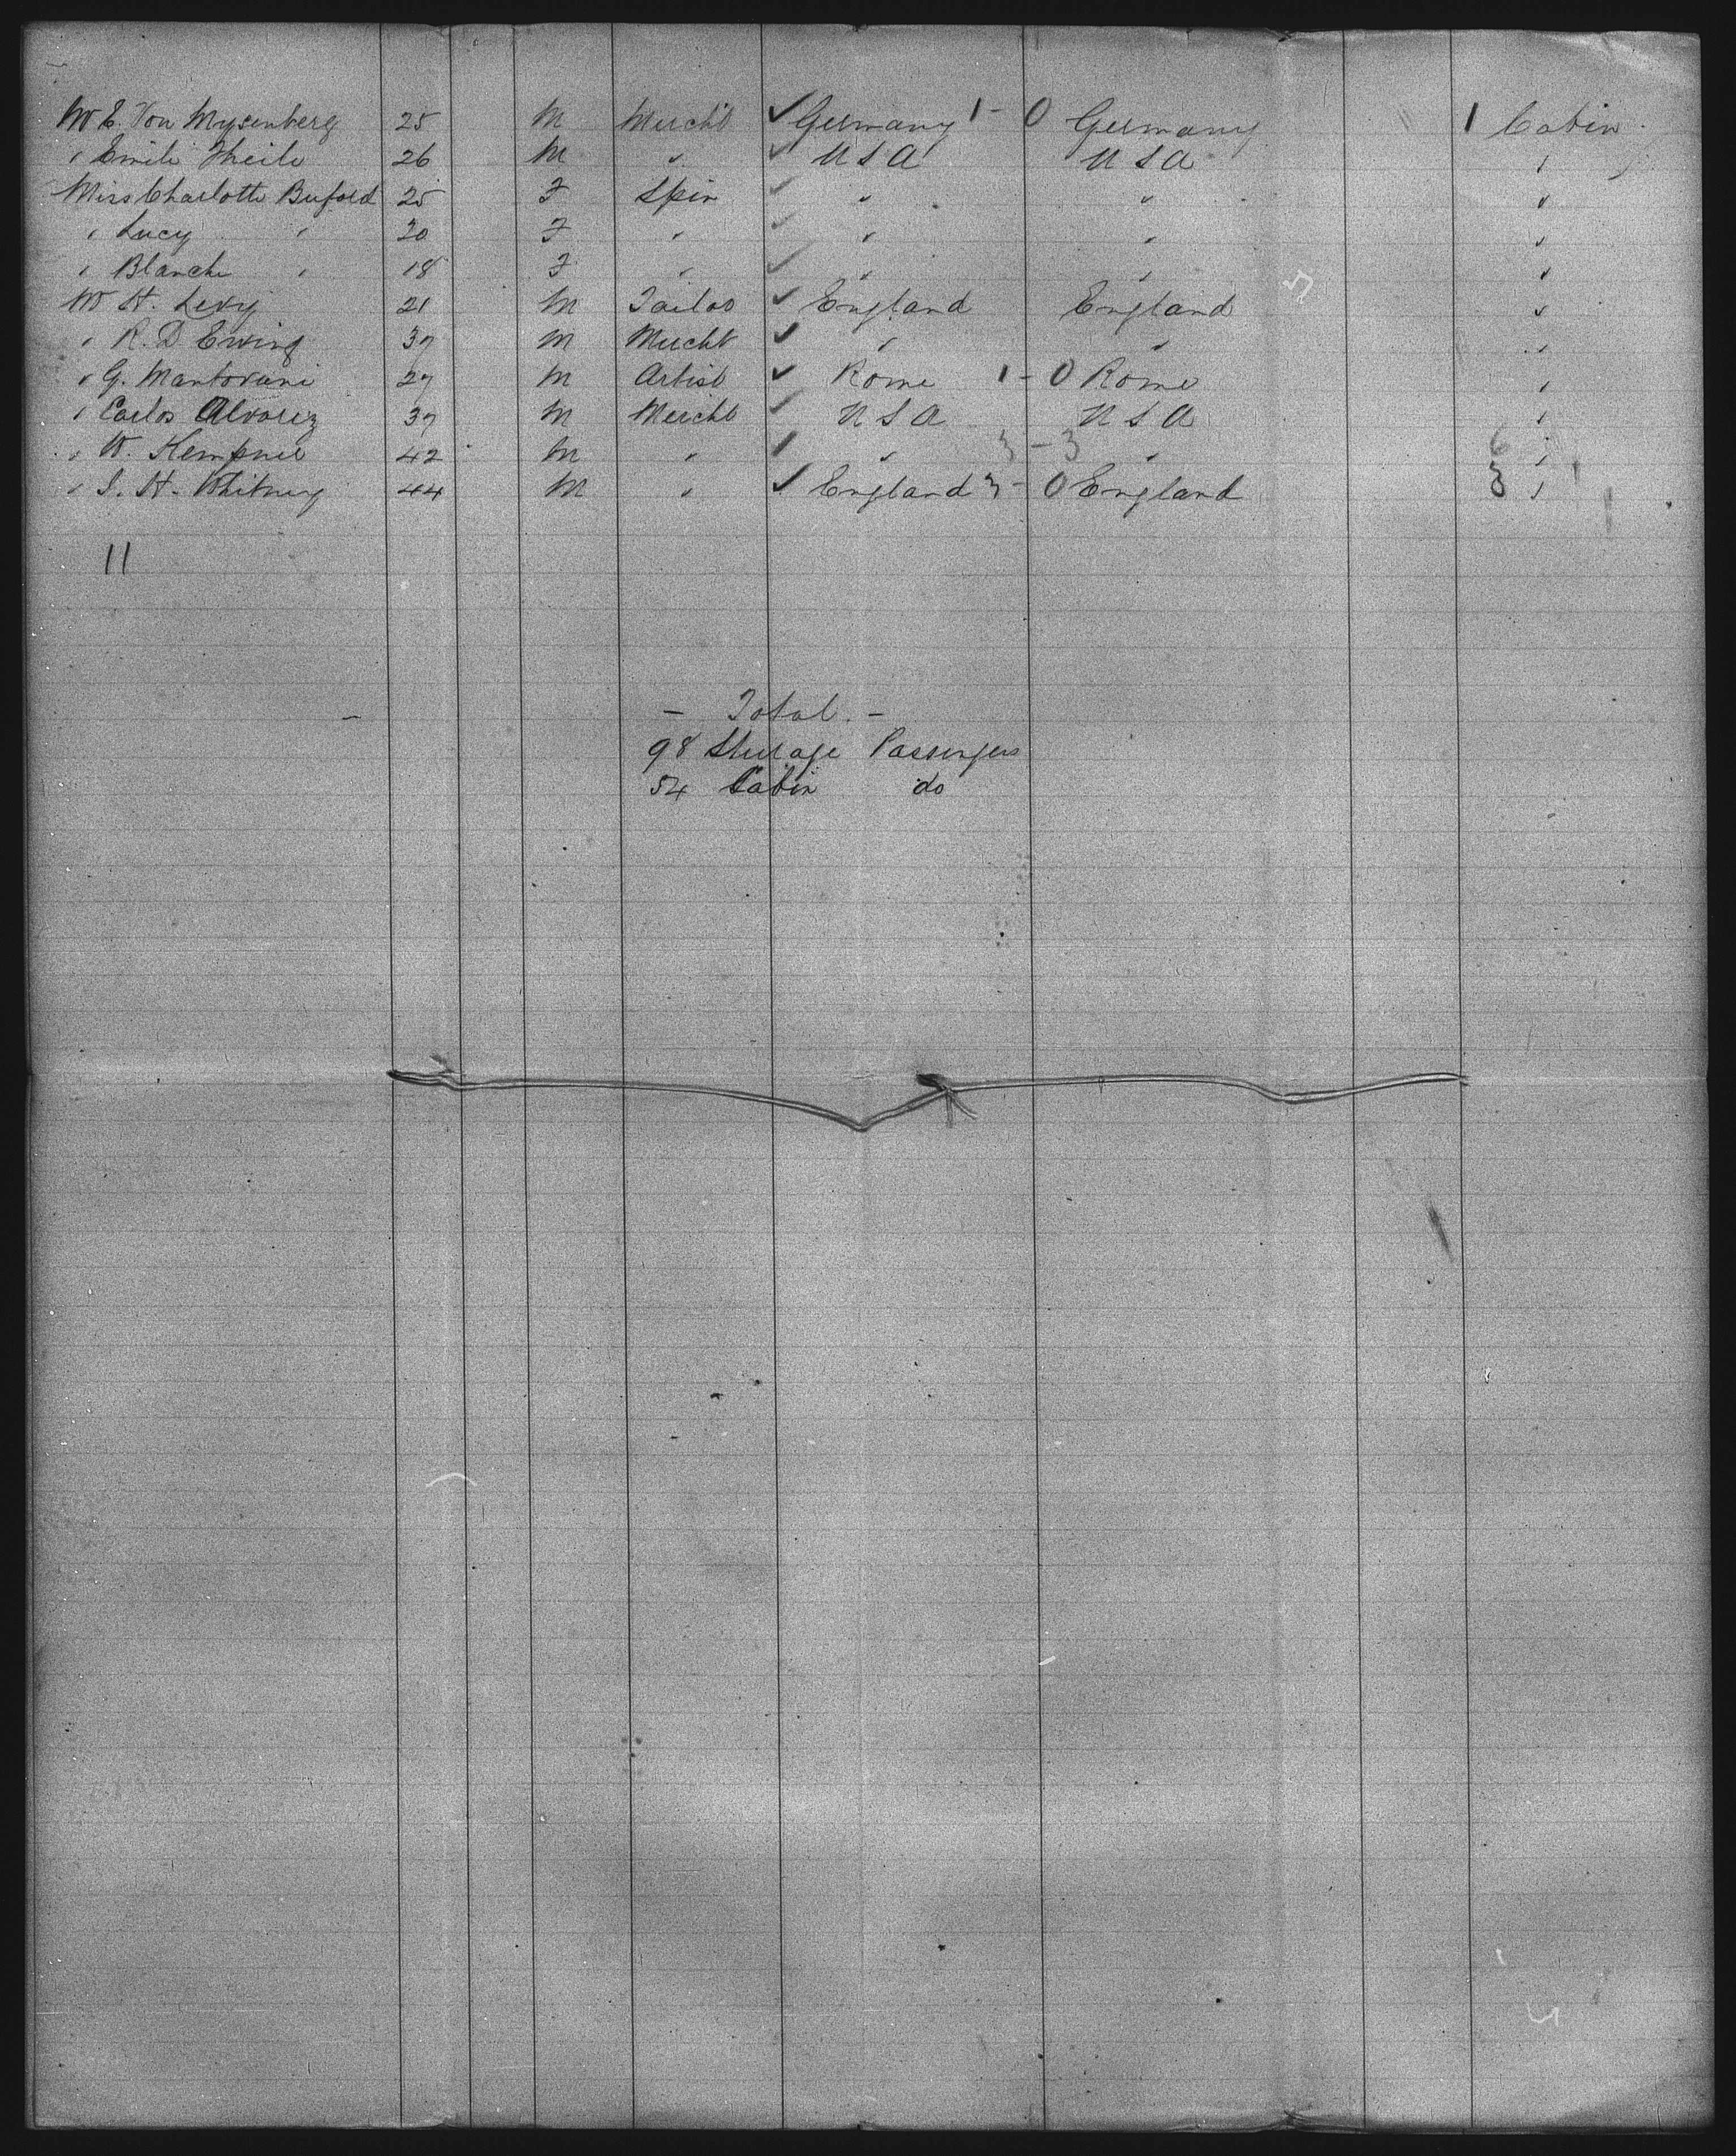 Mr E. Von Mysenberg 25 M Mercht ✓ Germany 1 - 0 Germany 1 Cabin
" Emile Theile 26 M " ✓ U S A U S A "
Miss Charlotte Buford 25 F Spin ✓ " " "
" Lucy " 20 F " ✓ " " "
" Blanche " 18 F " ✓ " " "
Mr H. Levy 21 M Tailor ✓ England England "
" R. D Ewing 37 M Mercht ✓ " " "
" G. Mantovani 27 M Artist ✓ Rome 1 - 0 Rome "
" Carlos Alvarez 37 M Mercht ✓ U S A U S A "
" W. Kempner 42 M " ✓ " 3 - 3 " 6 "
" S. H. Whitney 44 M " ✓ England 3 - 0 England 3 "
11
- Total. -
98 Steerage Passengers
54 Cabin do